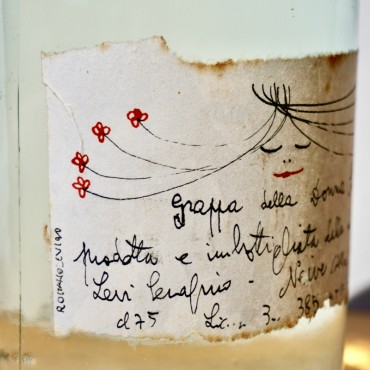 grappa della Donna
prodotta e imbottigliata della
Levi Serafino - Neive
cl 75 Lic... 3 385
ROMANO LEVI